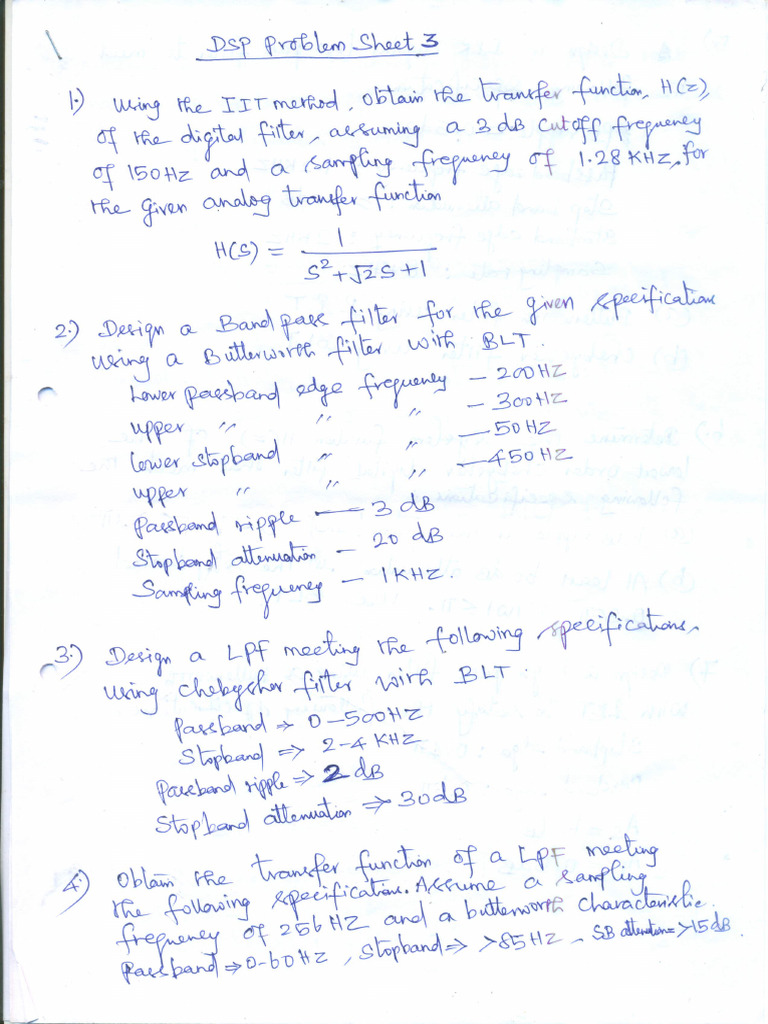 DSP Problem Sheet 3
1.) Using the IIT method, obtain the transfer function, H(z),
of the digital filter, assuming a 3 dB cutoff frequency
of 150Hz and a sampling frequency of 1.28 KHz, for
the given analog transfer function
H(S) = 1 / (S² + √2 S + 1)
2.) Design a Band pass filter for the given specification
using a Butterworth filter with BLT.
Lower passband edge frequency – 200Hz
upper " " " – 300Hz
Lower stopband " " – 50Hz
upper " " " – 450Hz
Passband ripple – 3 dB
Stopband attenuation – 20 dB
Sampling frequency – 1KHz.
3.) Design a LPF meeting the following specifications,
using chebyshev filter with BLT.
Passband ⇒ 0–500Hz
Stopband ⇒ 2–4 KHz
Passband ripple ⇒ 2 dB
Stopband attenuation ⇒ 30dB
4.) Obtain the transfer function of a LPF meeting
the following specification. Assume a sampling
frequency of 256 Hz and a butterworth characteristic.
Passband ⇒ 0–60Hz, Stopband ⇒ >85Hz, SB attenution ⇒ >15dB